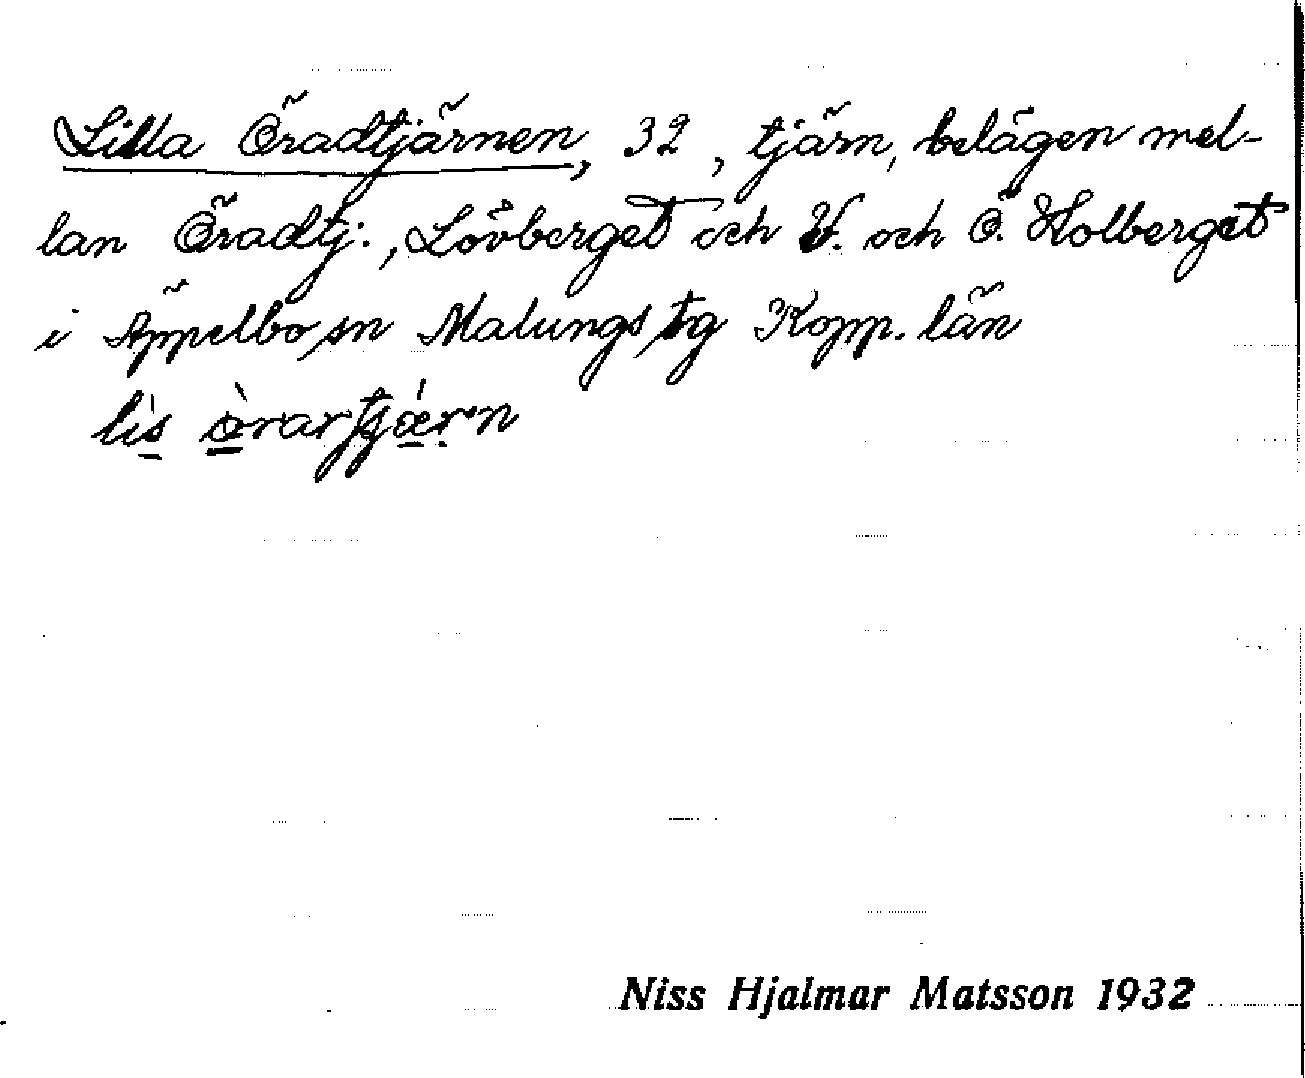 Lilla Öradtjärnen, 32, tjärn, belägen mel-
lan Öradtj:, Lövberget och V. och Ö. Holberget
i Äppelbo sn Malungs tg Kopp. län
lis örartjär'n
Niss Hjalmar Matsson 1932